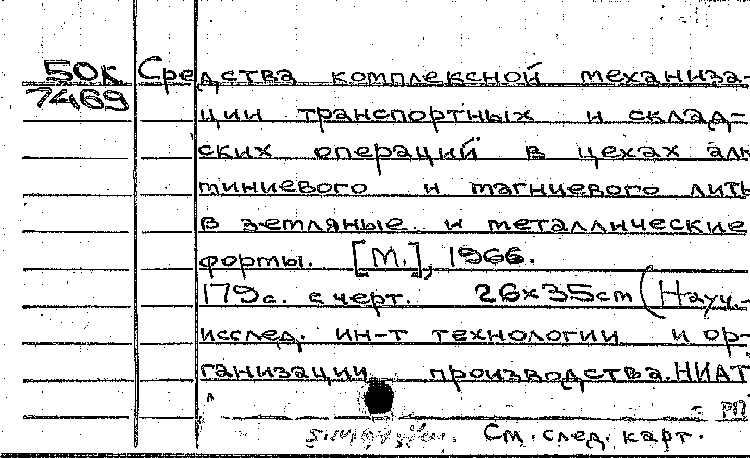 50к Средства комплексной механиза-
7469
ции транспортных и склад-
ских операций в цехах алю
миниевого и магниевого лить
в земляные и металлические
формы. [М.], 1966.
179с. с черт. 26х35cm (Науч.-
исслед. ин-т технологии и ор-
ганизации производства.НИАТ
РП
См. след. карт.